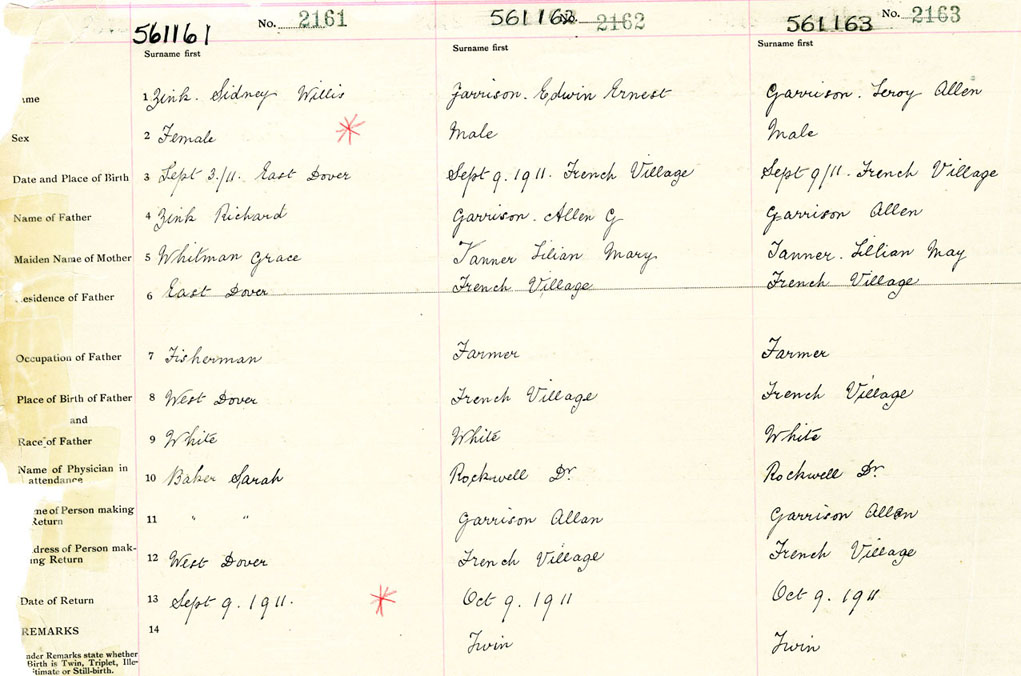 No. 2161 No. 2162 No. 2163
561161 561162 561163
Surname first Surname first Surname first
1 Zink. Sidney Willis Jarrison. Edwin Ernest Garrison. Leroy Allen
Sex 2 Female Male Male
Date and Place of Birth 3 Sept 3/11. East Dover Sept 9. 1911. French Village Sept 9/11. French Village
Name of Father 4 Zink Richard Garrison. Allen G Garrison Allen
Maiden Name of Mother 5 Whitman Grace Tanner Lilian Mary Tanner. Lillian May
esidence of Father 6 East Dover French Village French Village
Occupation of Father 7 Fisherman Farmer Farmer
Place of Birth of Father 8 West Dover French Village French Village
and
Race of Father 9 White White White
Name of Physician in
attendance 10 Baker Sarah Rockwell Dr. Rockwell Dr.
me of Person making
Return 11 " " Garrison Allan Garrison Allen
dress of Person mak-
ing Return 12 West Dover French Village French Village
Date of Return 13 Sept 9. 1911. Oct 9. 1911 Oct 9. 1911
REMARKS 14 Twin Twin
nder Remarks state whether
Birth is Twin, Triplet, Ille-
itimate or Still-birth.